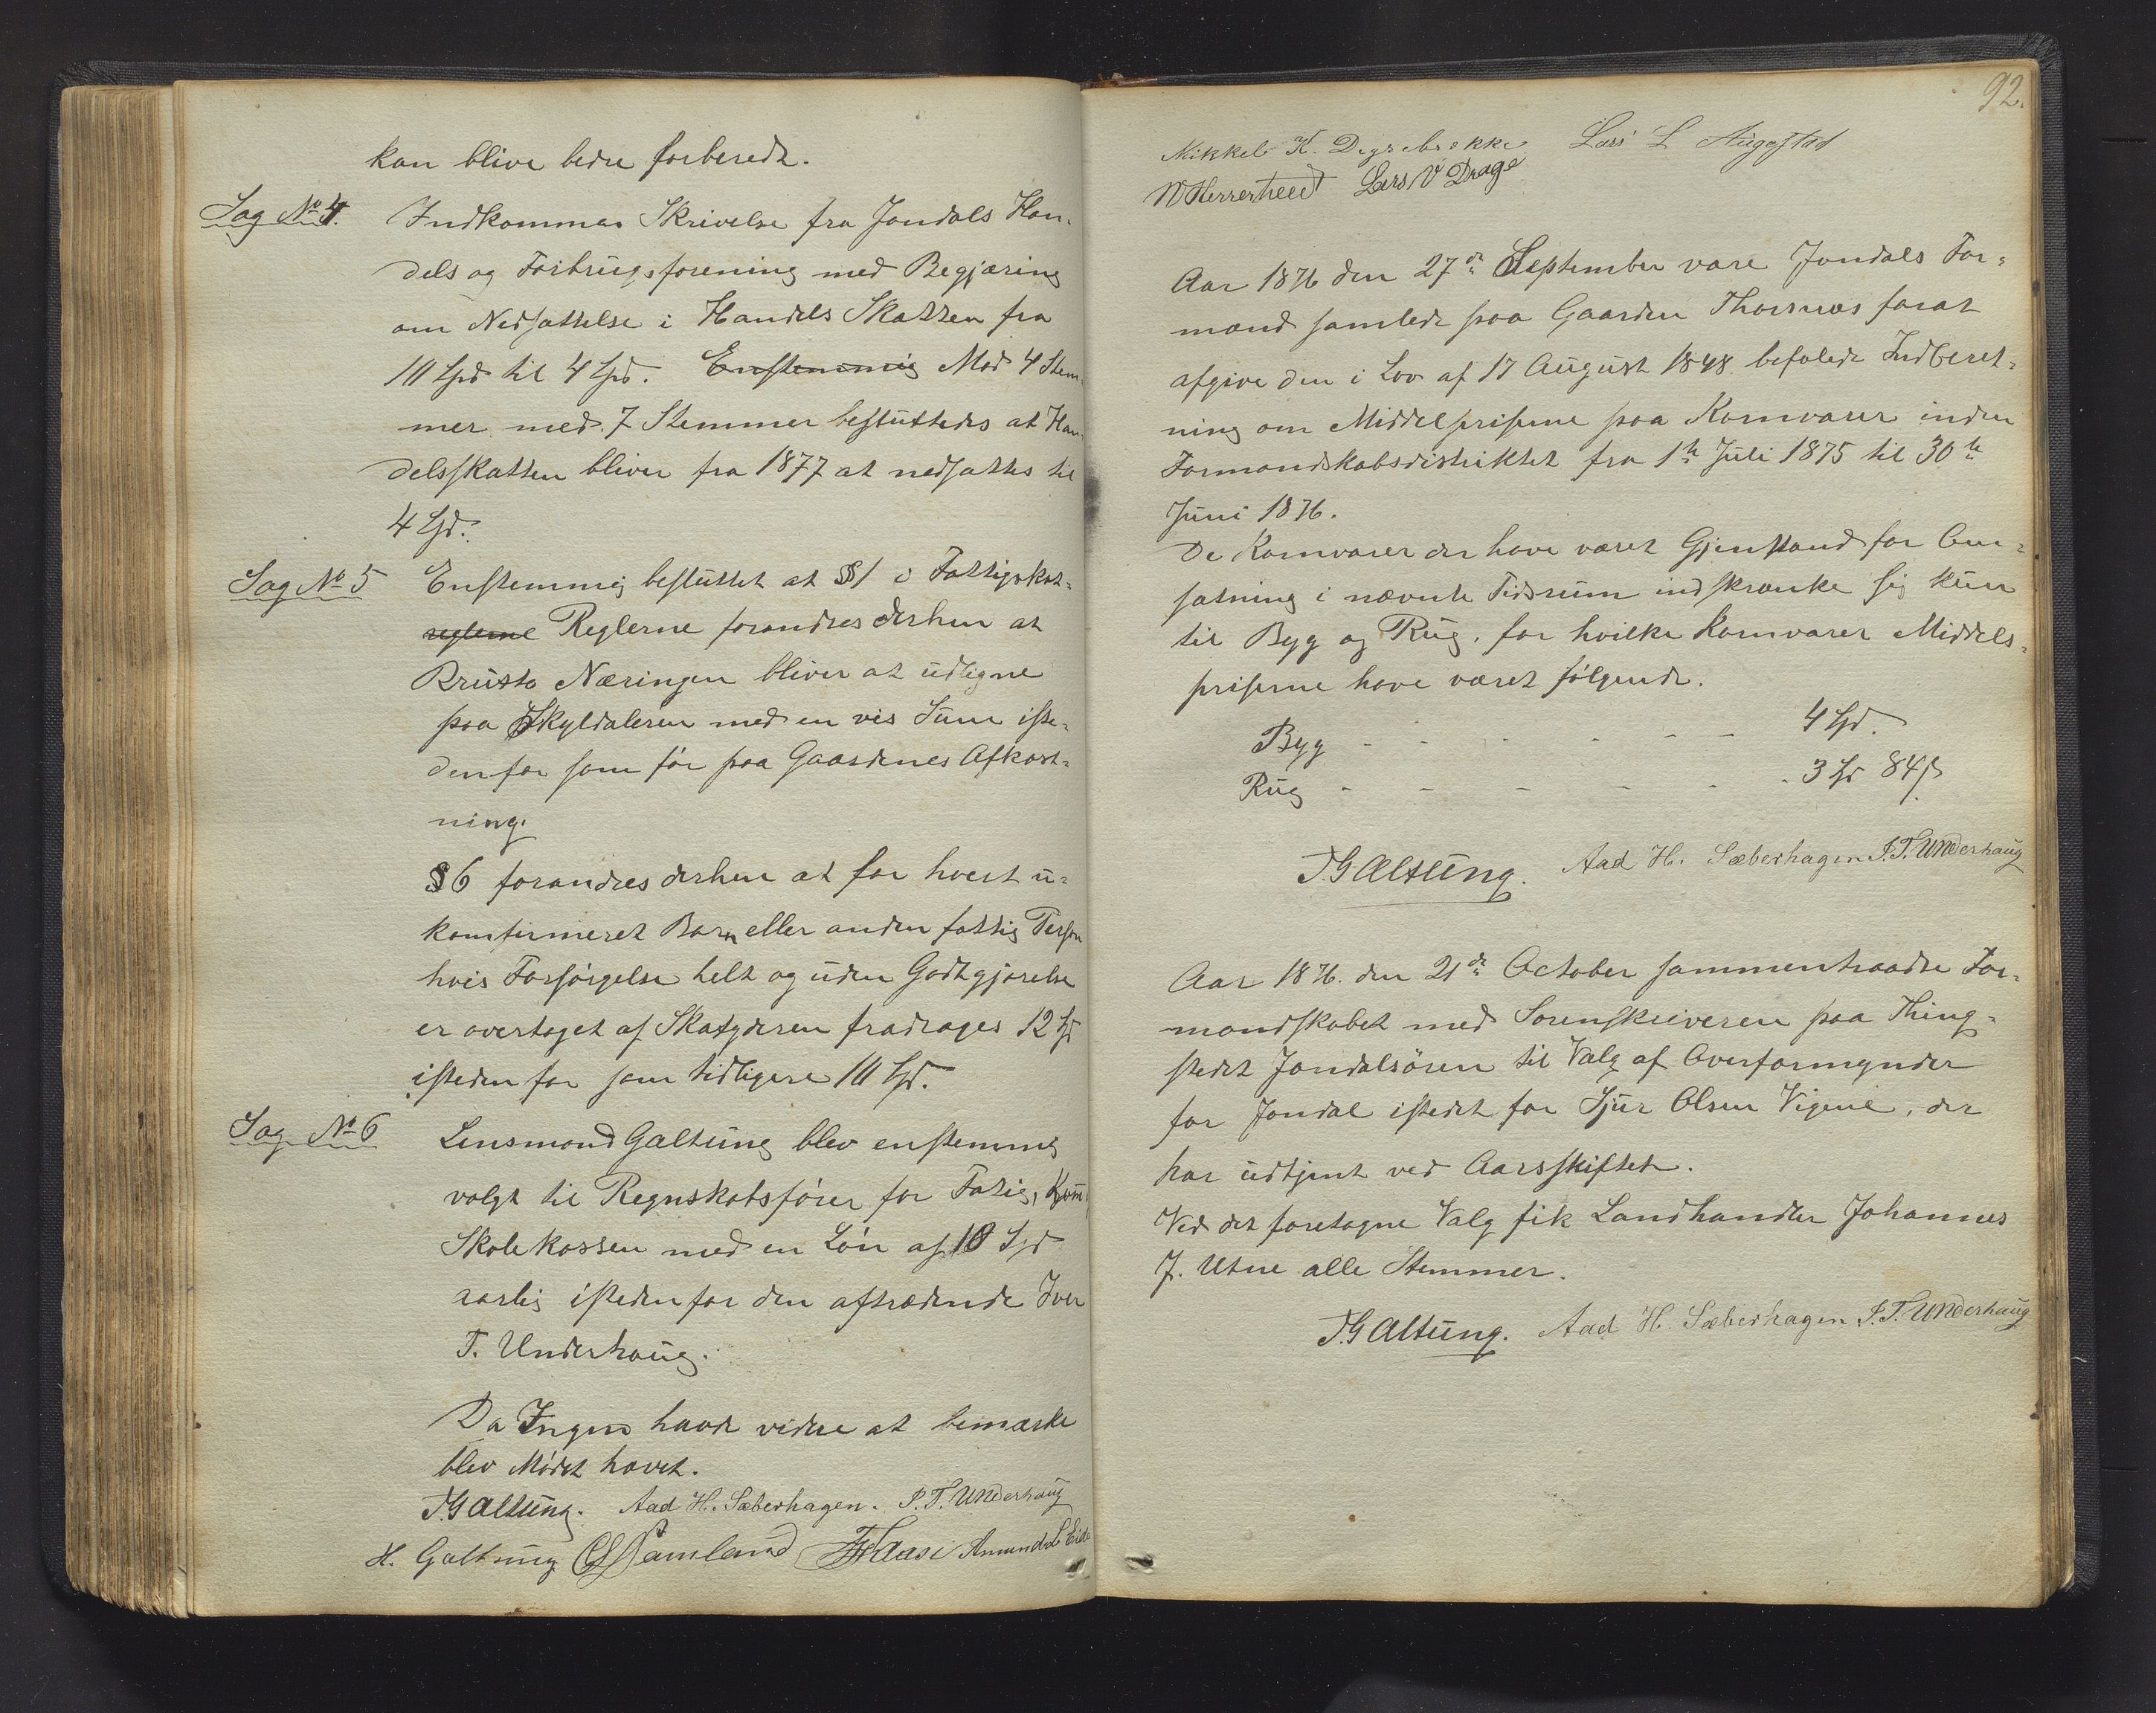 kan blive bedre forberedt.
Sag No 4. Indkommen Skrivelse fra Jondals Han-
dels og Forbrugsforening med Begjæring
om Nedsættelse i Handels Skatten fra
10 Spd til 4 Spd. Enstemmig Mod 4 Stem-
mer med 7 Stemmer besluttedes at Han-
delsskatten bliver fra 1877 at nedsættes til
4 Spd.
Sag No 5 Enstemmig besluttet at §1 i Fattigskat-
reglerne Reglerne forandres derhen at
Brutto Næringen bliver at udligne
paa Skyldaleren med en vis Sum iste-
denfor som før paa Gaardenes Afkast-
ning.
§6 forandres derhen at for hvert u-
konfirmeret Barn eller anden fattig Person
hvis Forsørgelse helt og uden Godtgjørelse
er overtaget af Skatyderen fradrages 12 Spd
isteden for som tidligere 10 Spd.
Sag No 6 Lensmand Galtung blev enstemmig
valgt til Regnskabsfører for Fattig, Kom,
Skolekassen med en Løn af 10 Spd
aarlig istedenfor den aftrædende Iver
T. Underhaug.
Da Ingen havde videre at bemærke
blev Mødet hævet.
T. Galtung. Aad H. Sæberhagen. I. T. Underhaug
H. Galtung Samland Aasi Amund L Eide
92.
Mikkel K. Degrebrekke Lars L Augestad
N Herrestveed Lars V Drage
Aar 1876 den 27de September vare Jondals For-
mænd samlede paa Gaarden Thorsnæs forat
afgive den i Lov af 17 August 1848 befalede Indberet-
ning om Middelpriserne paa Kornvarer inden
Formandskabsdistriktet fra 1te Juli 1875 til 30te
Juni 1876.
De Kornvarer der have været Gjenstand for Om-
sætning i nævnte Tidsrum indskrænke sig kun
til Byg og Rug, for hvilke Kornvarer Middels-
priserne have været følgende.
Byg - - - - - - 4 Spd.
Rug - - - - - - 3 Spd 84 ß
T. Galtung. Aad H. Sæberhagen I. T. Underhaug
Aar 1876. den 21de October sammentraadte For-
mandskabet med Sorenskriveren paa Thing-
stedet Jondalsøren til Valg af Overformynder
for Jondal istedet for Sjur Olsen Vigene, der
har udtjent ved Aarsskiftet.
Ved det foretagne Valg fik Landhandler Johannes
J. Utne alle Stemmer.
T. Galtung. Aad H. Sæberhagen I. T. Underhaug